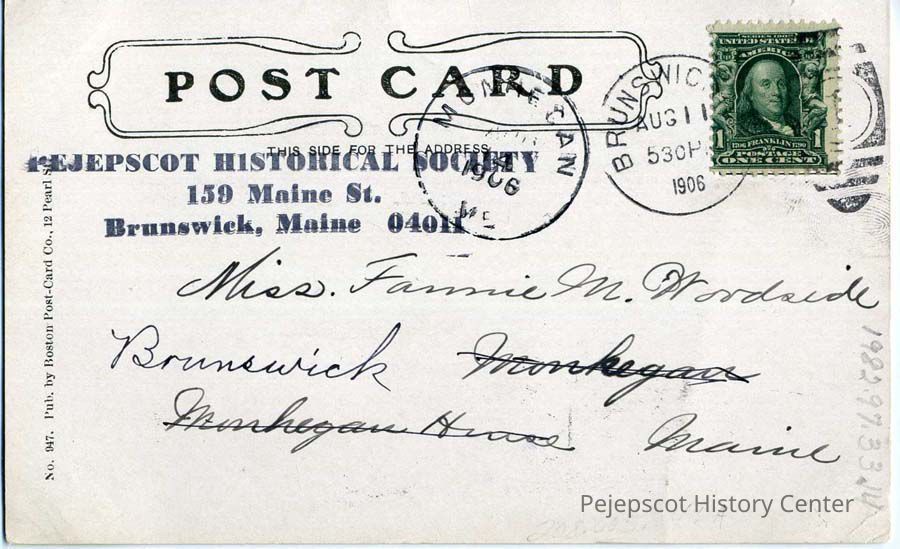 POST CARD
THIS SIDE FOR THE ADDRESS
PEJEPSCOT HISTORICAL SOCIETY
159 Maine St.
Brunswick, Maine 04011
MONHEGAN
1906
BRUNSWICK
AUG 11
530P
1906
SERIES 1902
UNITED STATES OF
AMERICA
1 FRANKLIN 1
POSTAGE
ONE CENT
No. 947. Pub. by Boston Post-Card Co., 12 Pearl
Miss. Fannie M. Woodside
Brunswick Monhegan
Monhegan House Maine
Pejepscot History Center